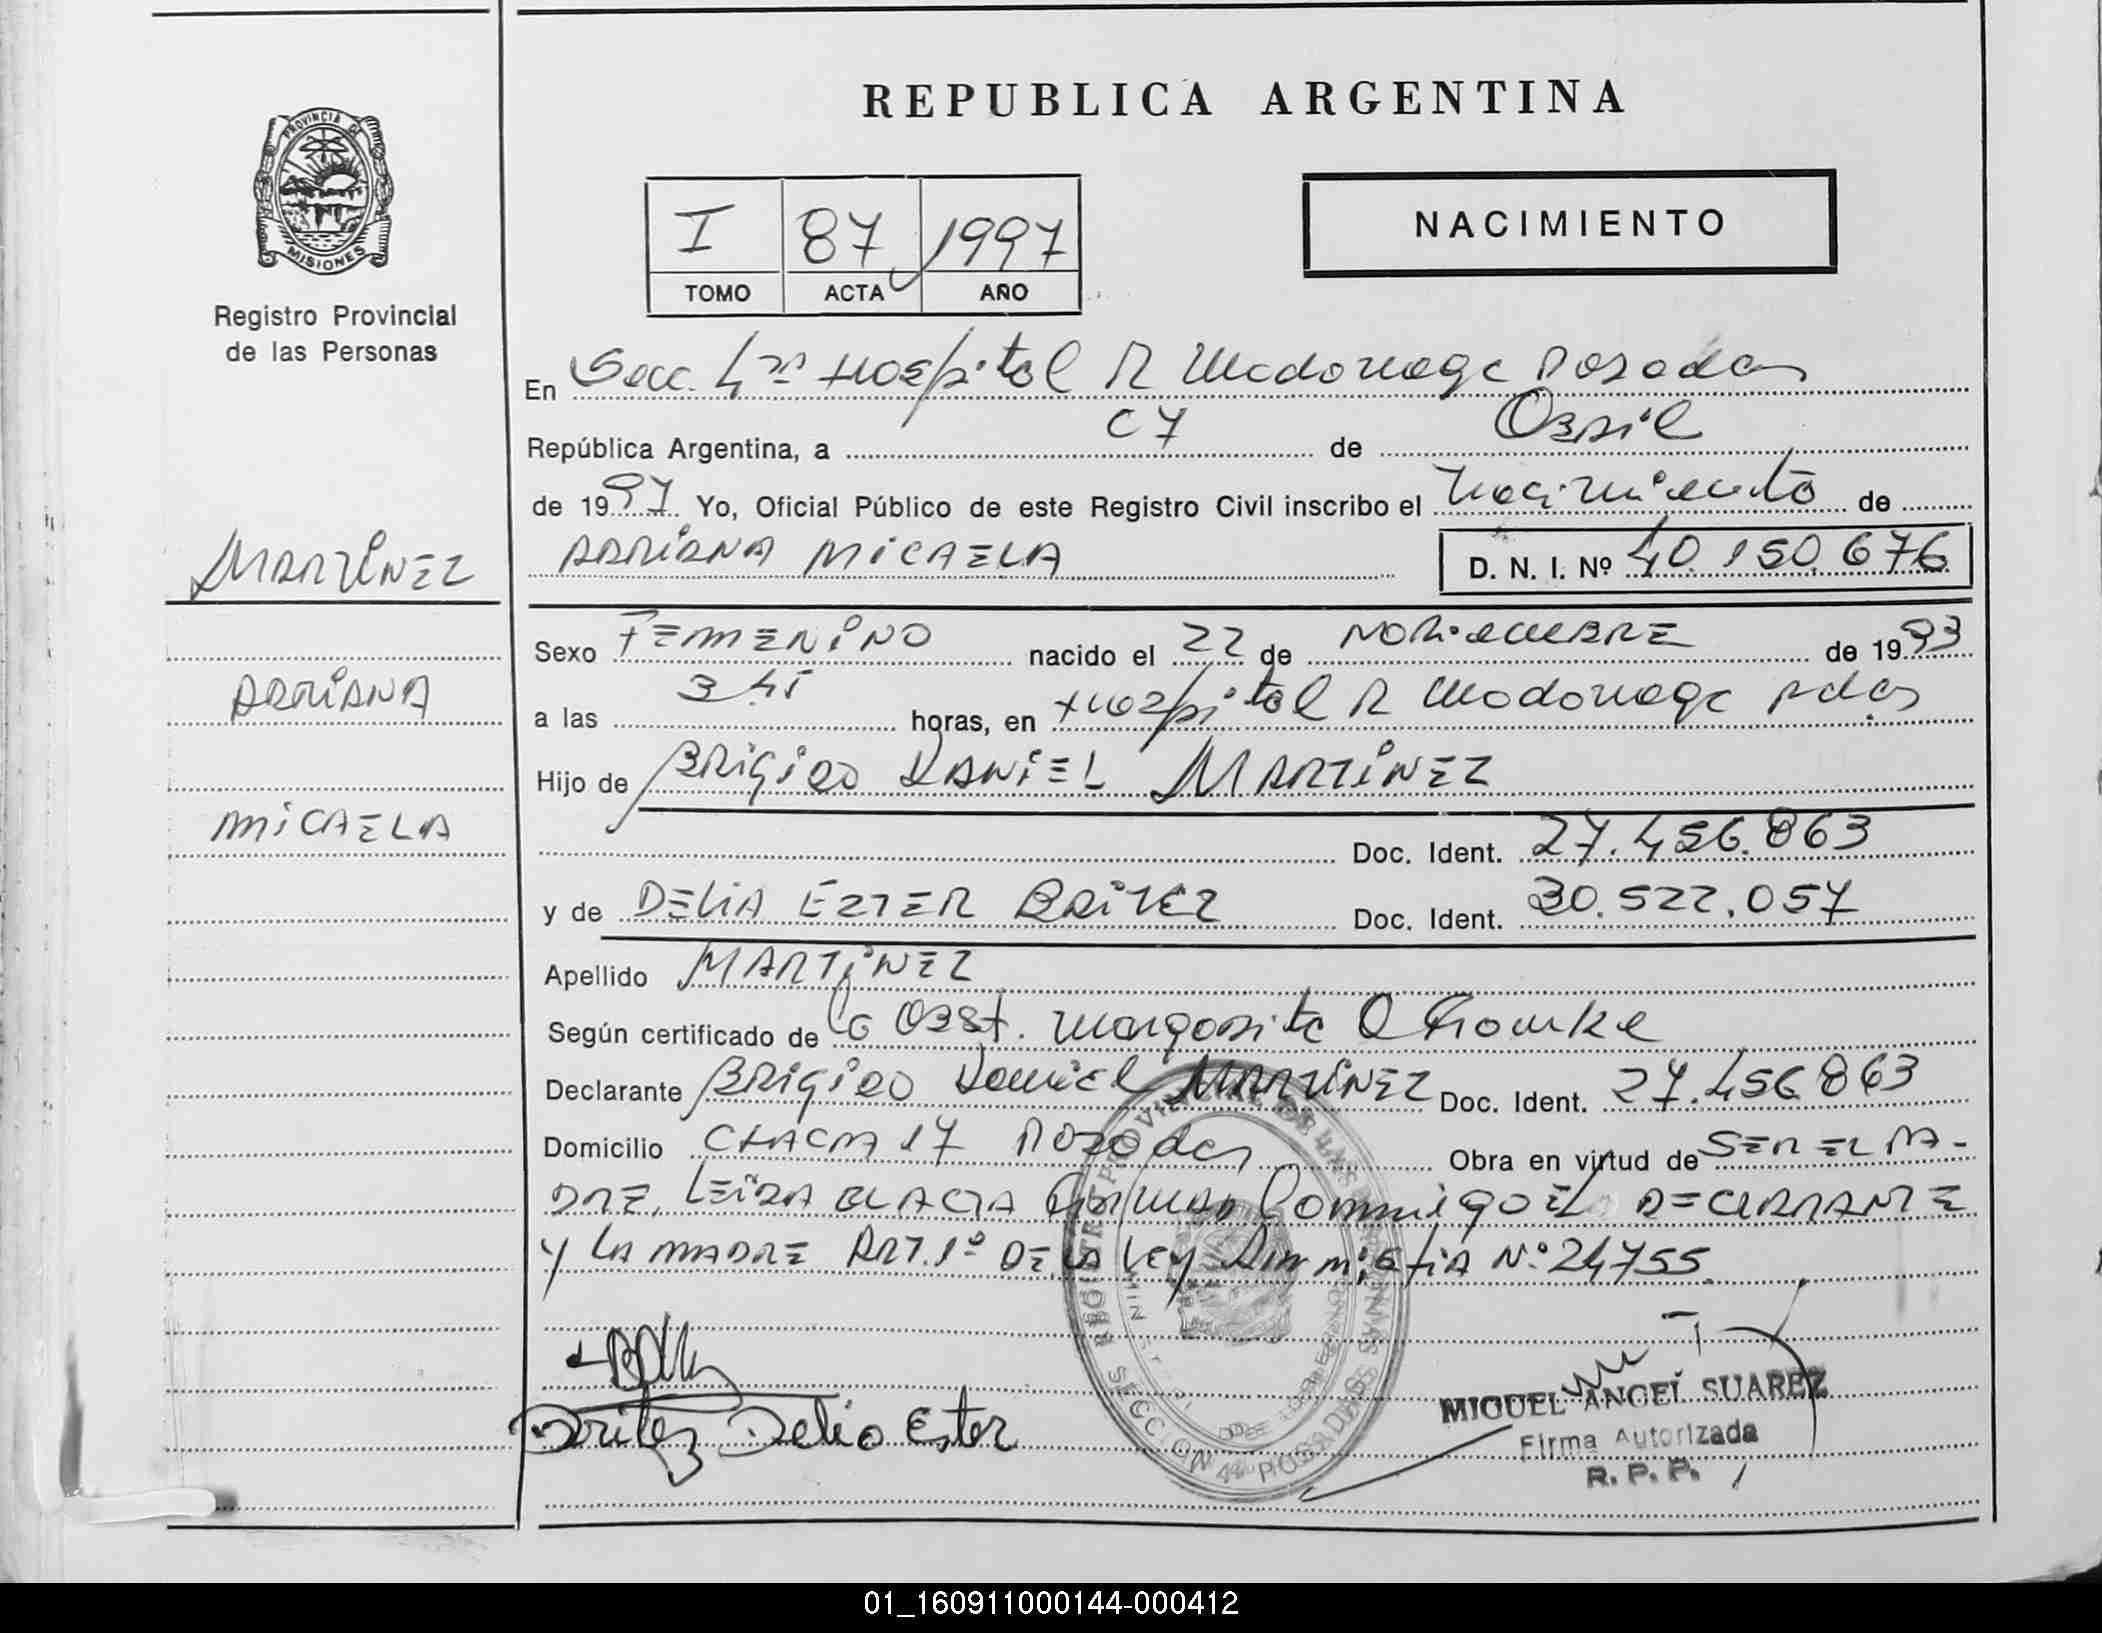 REPUBLICA ARGENTINA
PROVINCIA DE
MISIONES
Registro Provincial
de las Personas
I 87 1997
TOMO ACTA AÑO
NACIMIENTO
En Secc. 4ta Hospital R Madariaga Posadas
República Argentina, a 07 de Abril
de 1997 Yo, Oficial Público de este Registro Civil inscribo el Nacimiento de
ADRIANA MICAELA D. N. I. Nº 40.150.676
MARTINEZ
ADRIANA
MICAELA
Sexo FEMENINO nacido el 22 de NOViEMBRE de 1993
a las 3.45 horas, en Hospital R Madariaga Pdas
Hijo de BRIGIDO DANIEL MARTINEZ
Doc. Ident. 27.456.863
y de DELIA EZTER BRITEZ Doc. Ident. 30.522.057
Apellido MARTINEZ
Según certificado de la Obst. Margarita
Declarante BRIGIDO Daniel MARTINEZ Doc. Ident. 27.456.863
Domicilio CHACRA 17 Posadas Obra en virtud de SER EL PA-
DRE, LEIDA EL ACTA FIRMAN Conmigo EL DECLARANTE
Y LA MADRE ART. 1º DE LA LEY Ammistia Nº 24755
Britez Delia Ester
MIGUEL ANGEL SUAREZ
Firma Autorizada
R. P. P.
01_160911000144-000412